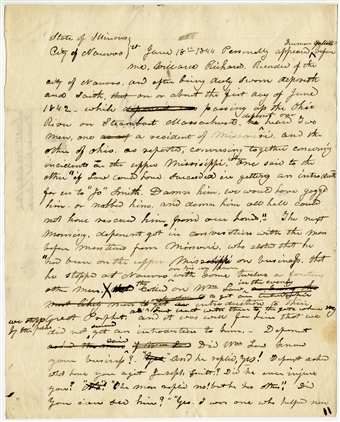 State of Illinois
City of Nauvoo } ss June 18th 1844 Personally appeared Truman Gillett before
me, Willard Richards, Recorder of the
city of Nauvoo, and after being duly sworn deposeth
and saith, that on or about the first day of June
1842. while passing up the Ohio
River on Steamboat Massachusetts, deponent over heard two
men, one a resident of Missouri, and the
other of Ohio. as reported, conversing together concerning
incidents on the upper Mississippi, one said to the
other "if Law could have succeeded in getting an introduction
for us to "Jo" Smith, Damn him, we would have gagged
him. or nabbed him, and damn him all hell could
not have rescued him from our hands". The next
morning, deponent got in conversation with the man
before mentioned from Missouri, who stated that he
"had been on the upper Mississippi on business, that
he stopped at Nauvoo on his way down with some twelve or fourteen
other men, called on Wm Law in the evening
to get an introduction
Great Prophet. to their
did not get an introduction to him. Deponent
Did Wm Law know
your business?" and he replied, yes! Deponent asked
what have you against Joseph Smith? Did he ever injure
you? "The man replied no! but he has others". Did
you ever see him? "Yes. I was one who helped run